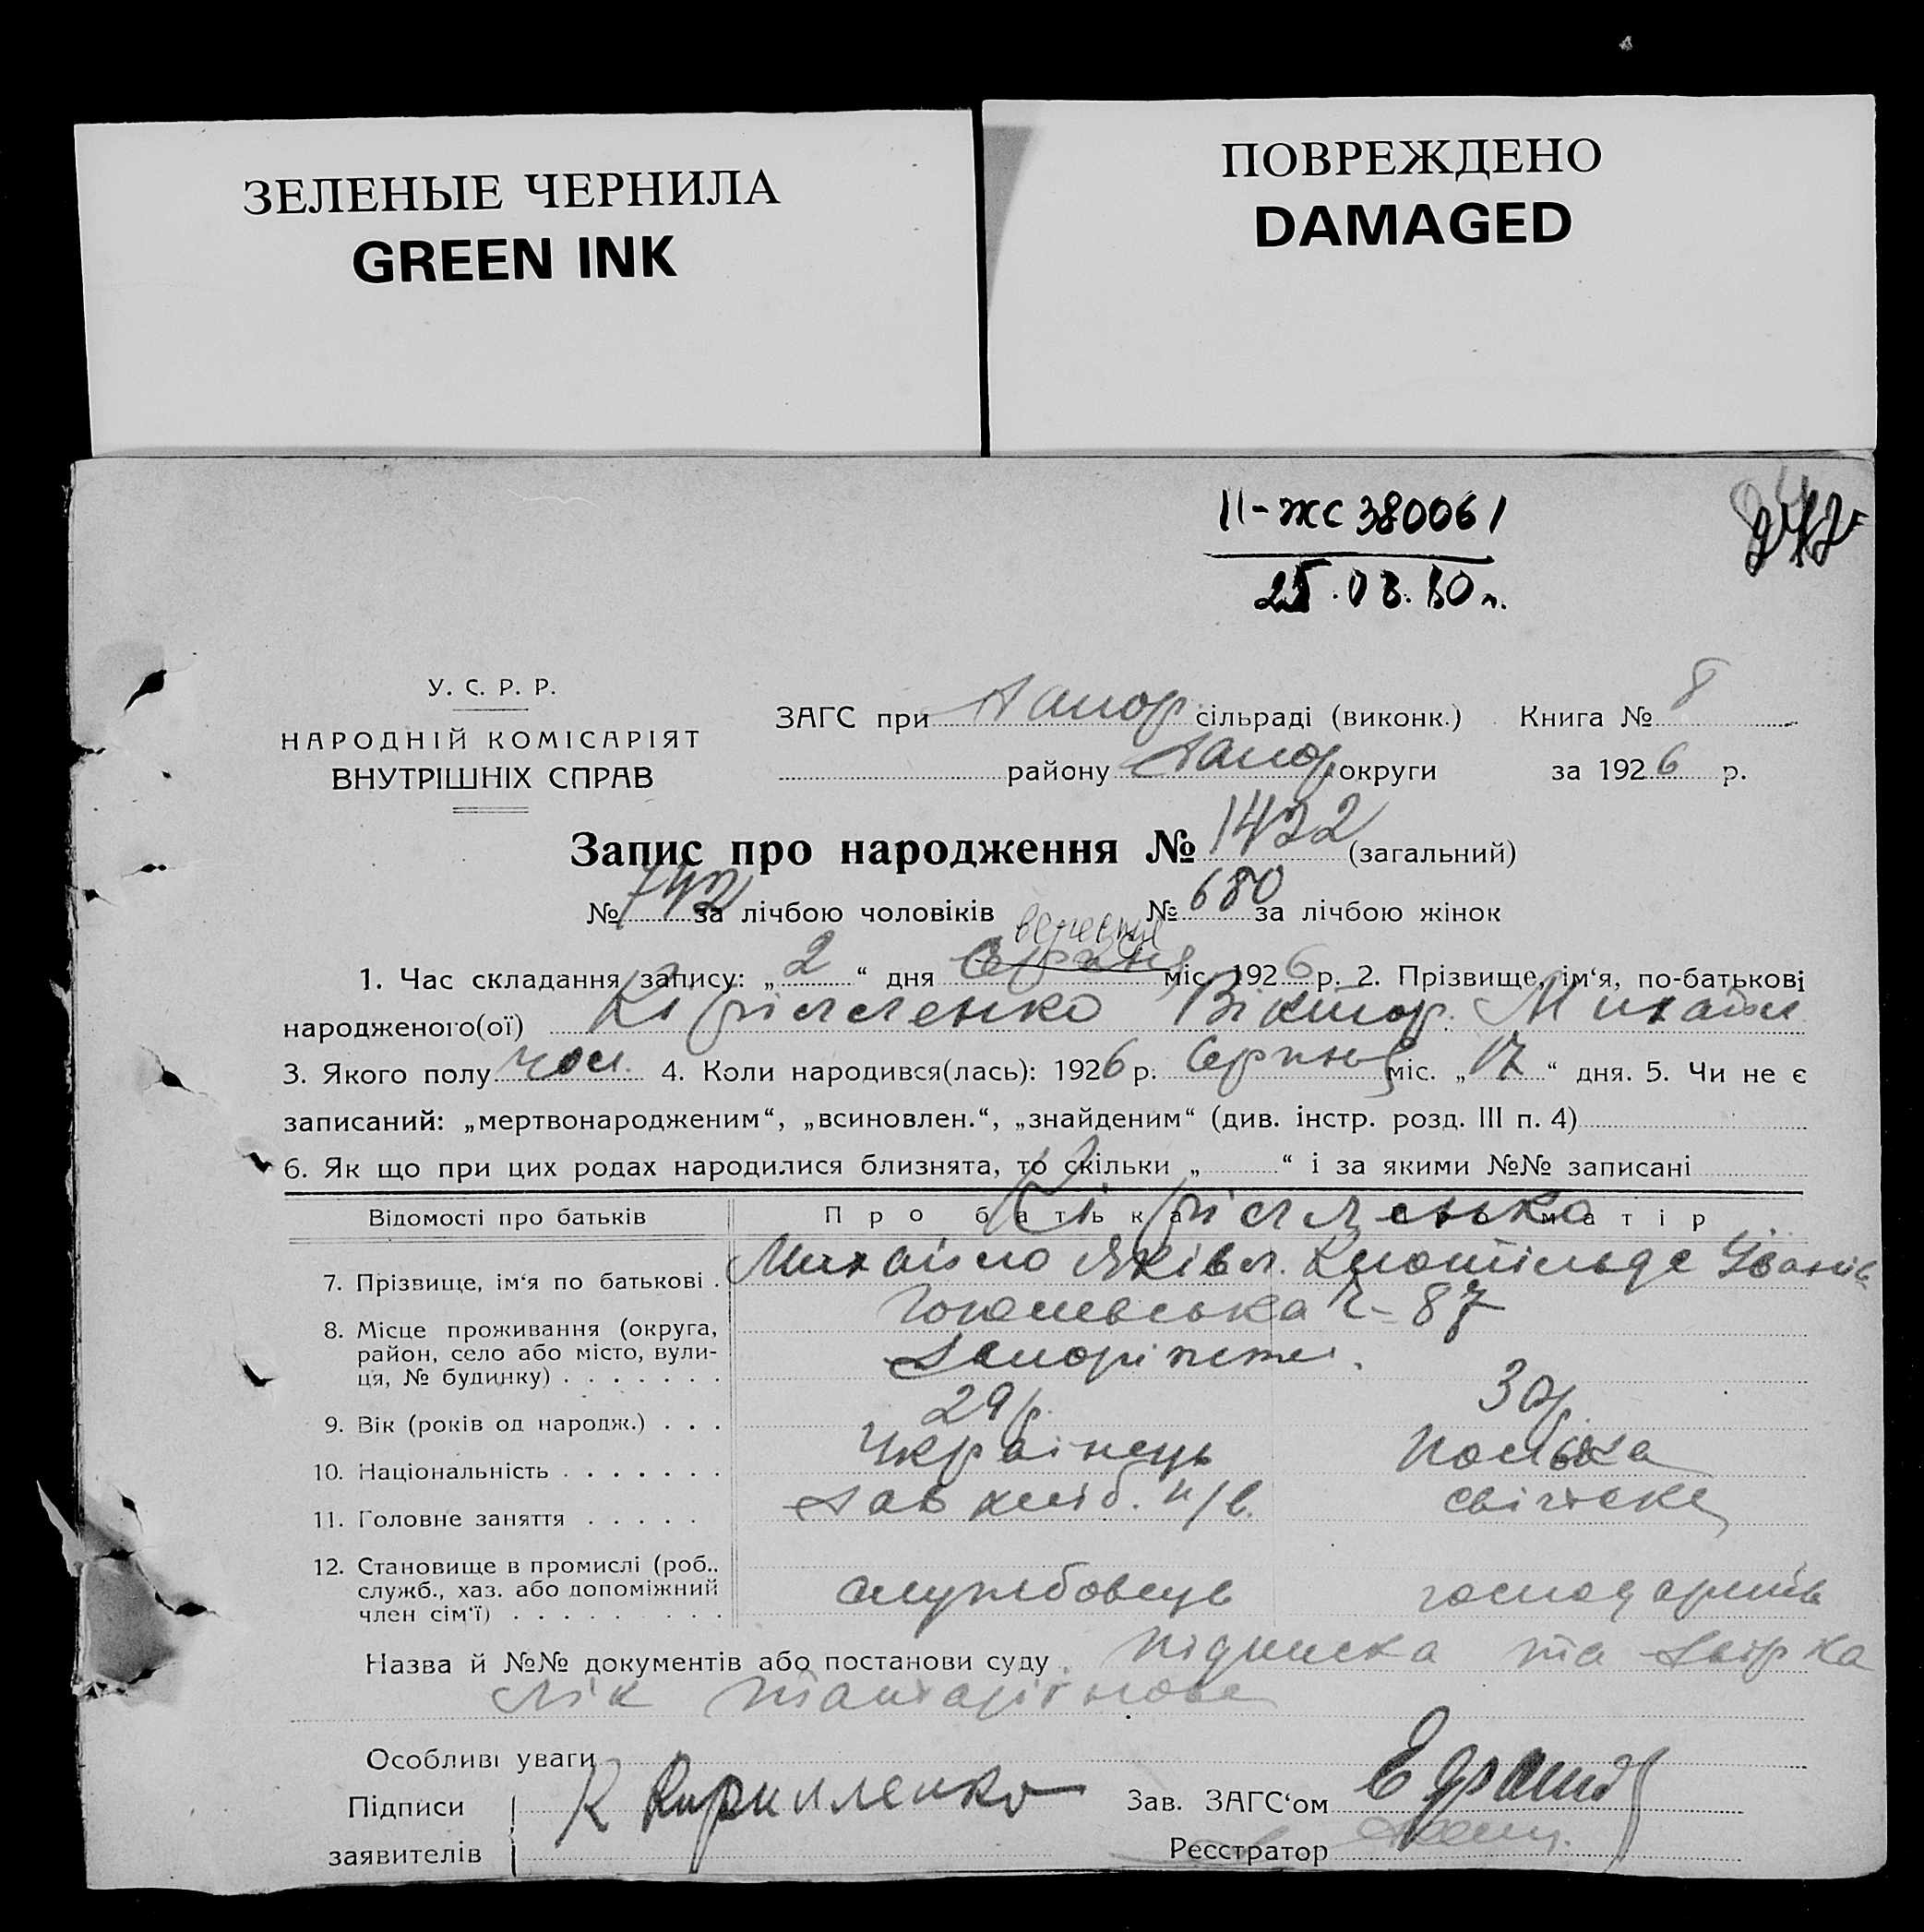 ЗЕЛЕНЫЕ ЧЕРНИЛА
GREEN INK
ПОВРЕЖДЕНО
DAMAGED
II-ЖС 380061
У. С. Р. Р.
НАРОДНІЙ КОМІСАРІЯТ
ВНУТРІШНІХ СПРАВ
ЗАГС при Запор. сільраді (виконк.) Книга № 8
району Запор округи за 1926 р.
Запис про народження № 1422 (загальний)
№ 742 за лічбою чоловіків № 680 за лічбою жінок
вересня
1. Час складання запису: „ 2 “ дня Серпня міс. 1926 р. 2. Прізвище, ім‘я, по-батькові
народженого(ої) Кірілленко Віктор. Михайл
3. Якого полу чол. 4. Коли народився(лась): 1926 р. Серпня міс. „ 17 “ дня. 5. Чи не є
записаний: „мертвонародженим“, „всиновлен.“, „знайденим“ (див. інстр. розд. III п. 4)
6. Як що при цих родах народилися близнята, то скільки „ “ і за якими №№ записані
Відомості про батьків Про батька матір
Кіріллєнко
7. Прізвище, ім‘я по батькові . Михайло Яківл. Клотільда Іванів
8. Місце проживання (округа, район, село або місто, вулиця, № будинку) . . . . . . . Гоголевська ч-87
Запоріжжя.
9. Вік (років од народж.) . . . 29 р. 30 р.
10. Національність . . . . . . . Українець Полька
11. Головне заняття . . . . . Зав
12. Становище в промислі (роб., служб., хаз. або допоміжний член сім‘ї) . . . . . . . . . службовець господарків
Назва й №№ документів або постанови суду . підписка та
Особливі уваги
Підписи К Кирилленко Зав. ЗАГС‘ом
заявителів Реєстратор